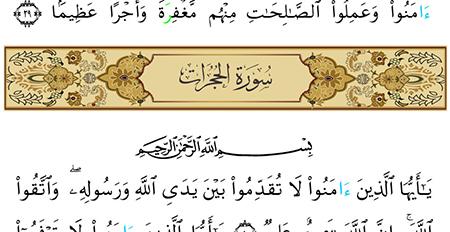 ءَامَنُوا۟ وَعَمِلُوا۟ ٱلصَّـٰلِحَـٰتِ مِنْهُم مَّغْفِرَةً وَأَجْرًا عَظِيمًۢا ﴿٢٩﴾
سُورَةُ الْحُجُرَاتِ
بِسْمِ ٱللَّهِ ٱلرَّحْمَـٰنِ ٱلرَّحِيمِ
يَـٰٓأَيُّهَا ٱلَّذِينَ ءَامَنُوا۟ لَا تُقَدِّمُوا۟ بَيْنَ يَدَىِ ٱللَّهِ وَرَسُولِهِۦ ۖ وَٱتَّقُوا۟